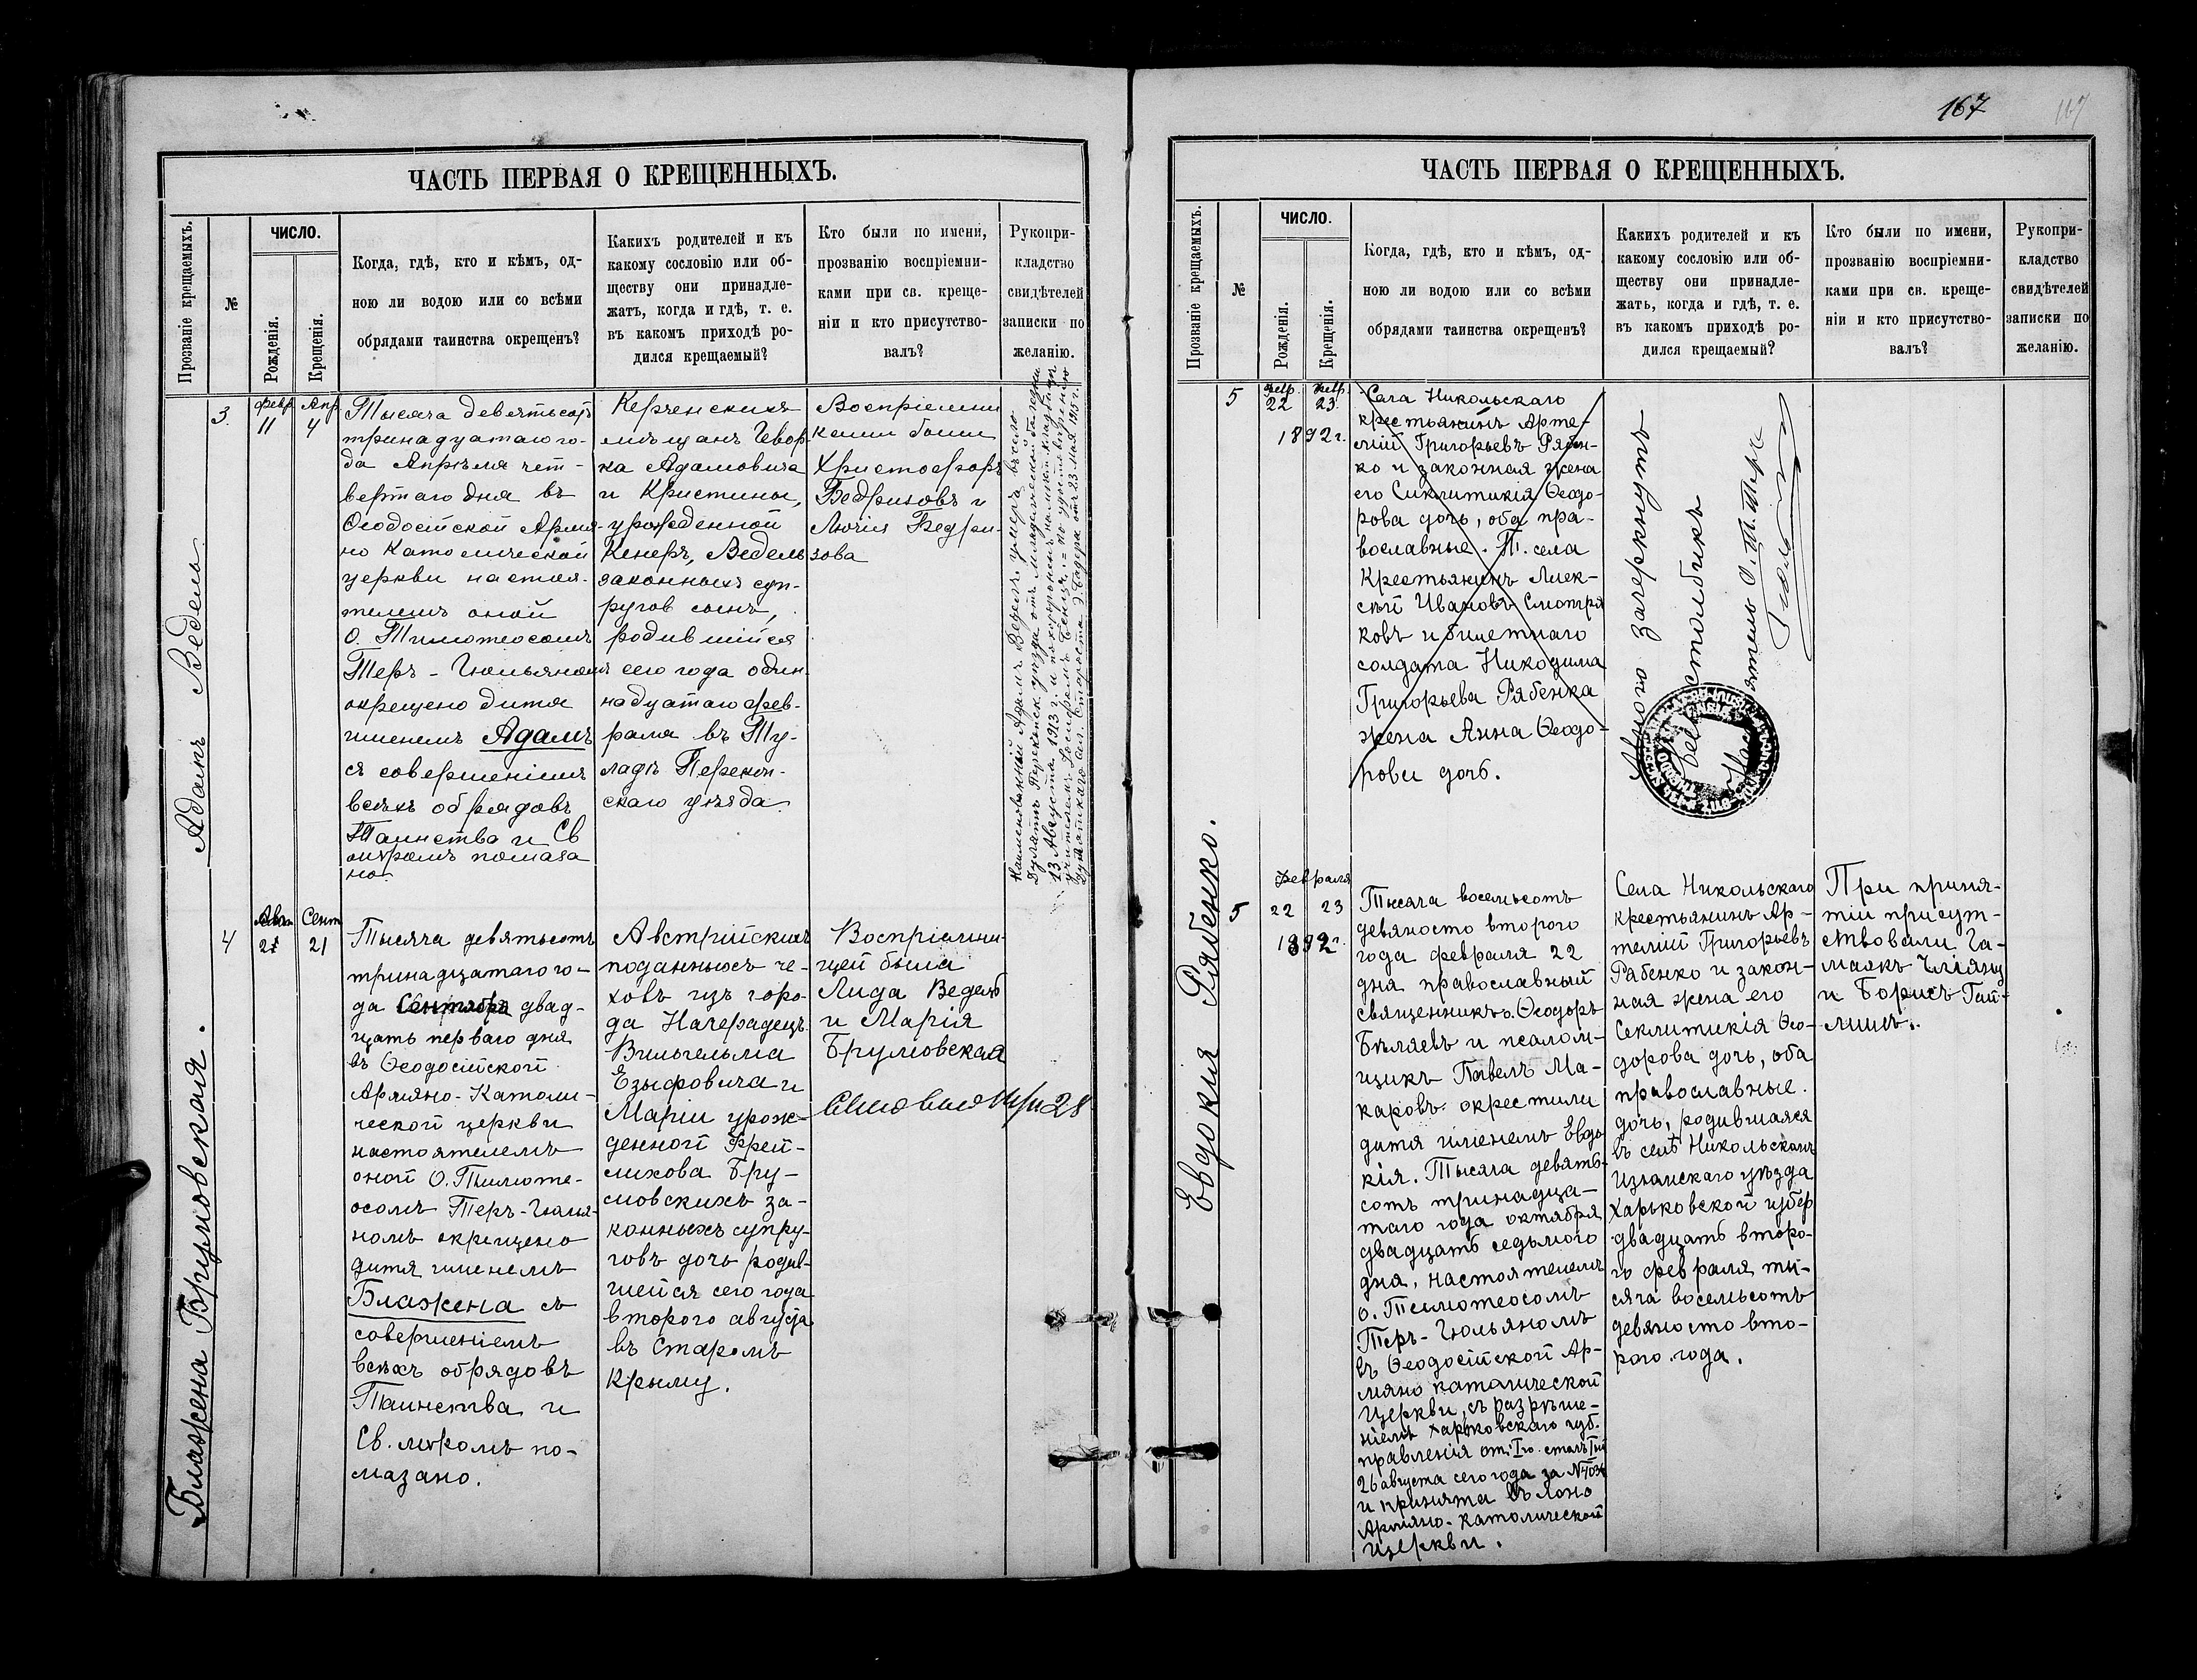 ЧАСТЬ ПЕРВАЯ О КРЕЩЕННЫХЪ.
Прозваніе крещаемыхъ.
№
ЧИСЛО.
Рожденія.
Крещенія.
Когда, гдѣ, кто и кѣмъ, од-
ною ли водою или со всѣми
обрядами таинства окрещенъ?
Какихъ родителей и къ
какому сословію или об-
ществу они принадле-
жатъ, когда и гдѣ, т. е.
въ какомъ приходѣ ро-
дился крещаемый?
Кто были по имени,
прозванію воспріемни-
ками при св. креще-
ніи и кто присутство-
валъ?
Рукопри-
кладство
свидѣтелей
записки по
желанію.
Адамъ Ведель
3
Февр
11
Апр
4
Тысяча девятьсотъ
тринадцатаго го-
да Апрѣля чет-
вертаго дня въ
Ѳеодосійской Армя-
но Католической
церкви настоя-
телемъ оной
О. Тимотеосомъ
Теръ-Гюльяномъ
окрещено дитя
именемъ Адамъ
съ совершеніемъ
всѣхъ обрядовъ
Таинства и Св
мѵромъ помаза
но.
Керченскихъ
мѣщанъ Гевор-
ка Адамовича
и Кристины,
урожденной
Кенеръ, Ведель
законныхъ суп-
руговъ сынъ,
родившійся
сего года один-
надцатаго фев-
раля въ Ту-
ладъ Перекоп-
скаго уѣзда.
Воспріемни
ками были
Христофоръ
Бедризовъ и
Лючія Бедри-
зова
Наименованный Адамъ Ведель умеръ въ село
13 Августа 1913 г. и похороненъ на мѣст. кладбищѣ
Блажена Брумовская.
4
Авг.
21
Сент
21
Тысяча девятьсотъ
тринадцатаго го-
да Сентября двад-
цать перваго дня
въ Ѳеодосійской
Армяно-Католи-
ческой церкви
настоятелемъ
оной О. Тимоте-
осомъ Теръ-Гюлья-
номъ окрещено
дитя именемъ
Блажена съ
совершеніемъ
всѣхъ обрядовъ
Таинства и
Св. мѵромъ по-
мазано.
Австрійскихъ
поданныхъ че-
ховъ изъ горо-
да Начерадецъ
Вильгельма
Езыфовича и
Маріи урож-
денной Фрей-
ликова Бру-
мовскихъ за-
конныхъ супру-
говъ дочь родив-
шейся сего года
второго августа
въ Старомъ
Крыму.
Воспріемни-
цей была
Лида Ведель
и Марія
Брумовская
167
ЧАСТЬ ПЕРВАЯ О КРЕЩЕННЫХЪ.
Прозваніе крещаемыхъ.
№
ЧИСЛО.
Рожденія.
Крещенія.
Когда, гдѣ, кто и кѣмъ, од-
ною ли водою или со всѣми
обрядами таинства окрещенъ?
Какихъ родителей и къ
какому сословію или об-
ществу они принадле-
жатъ, когда и гдѣ, т. е.
въ какомъ приходѣ ро-
дился крещаемый?
Кто были по имени,
прозванію воспріемни-
ками при св. креще-
ніи и кто присутство-
валъ?
Рукопри-
кладство
свидѣтелей
записки по
желанію.
5
Февр.
22
Февр.
23
1892 г.
Села Никольскаго
крестьянинъ Арте-
мій Григорьевъ Рябен-
ко и законная жена
его Синклитикія Ѳеодо-
рова дочь, оба пра-
вославные. Т. села
Крестьянинъ Алек-
сѣй Ивановъ Смотри
ковъ и билетнаго
солдата Никодима
Григорьева Рябенка
жена Анна Ѳеодо-
рови дочь.
зачеркнутъ
столбикъ
Евдокия Рябенко.
5
Февраля
22 23
1892 г.
Тысяча восемьсотъ
девяносто второго
года февраля 22
дня православный
священникъ о. Ѳеодоръ
Бѣляевъ и псалом-
щикъ Павелъ Ма-
каровъ окрестили
дитя именемъ Евдо
кія. Тысяча девять-
сотъ тринадца-
таго года октября
двадцать седьмого
дня, настоятелемъ
о. Тимотеосомъ
Теръ-Гюльяномъ
въ Ѳеодосійской Ар-
мяно католической
Церкви, съ разрѣше-
ніемъ Харьковскаго губ.
правленія
26 августа сего года за
и принята въ лоно
Армяно-католической
церкви.
Села Никольскаго
крестьянинъ Ар-
темій Григорьевъ
Рябенко и закон-
ная жена его
Секлитикія Ѳео-
дорова дочь, оба
православные.
дочь, родившаяся
въ селѣ Никольскомъ
Изюмскаго уѣзда
Харьковской губер
двадцать второ-
го февраля ты-
сяча восемьсотъ
девяносто вто-
рого года.
При приня-
тіи присут-
ствовали Га-
маякъ
и Борисъ Гай-